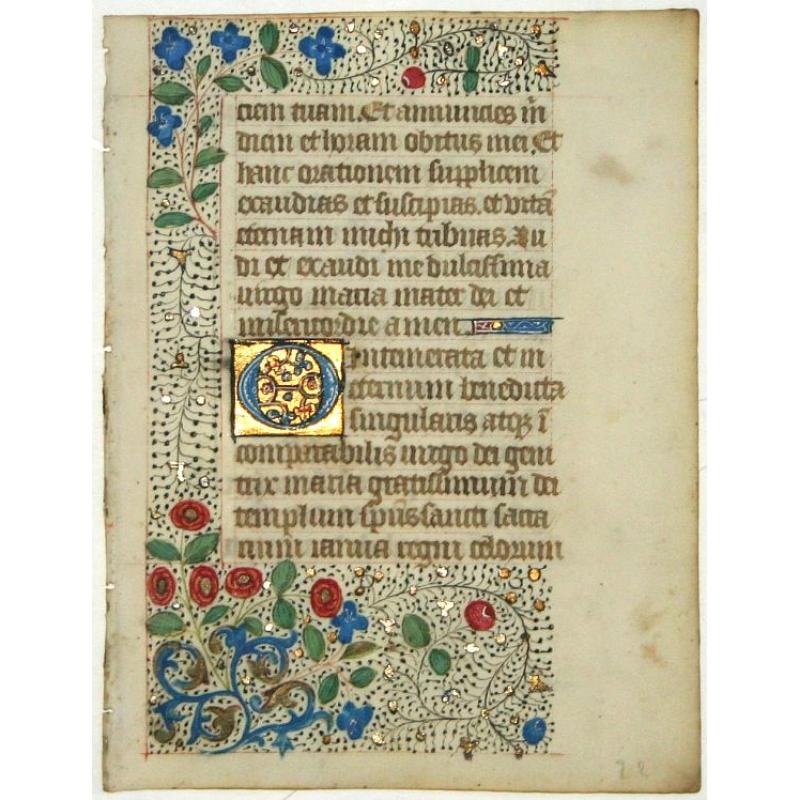 ciem tuam. Et annuncies m̄
diem et horam obitus mei. Et
hanc orationem supplicem
exaudias et suscipias. et vitā
eternam michi tribuas. Au
di et exaudi me dulcissima
uirgo maria mater dei et
misericordie amen.
O intemerata et in
eternum benedicta
singularis atqꝫ ī
comparabilis uirgo dei geni
trix maria gratissimum dei
templum sp̄us sancti sacra
rium ianua regni celorum
22